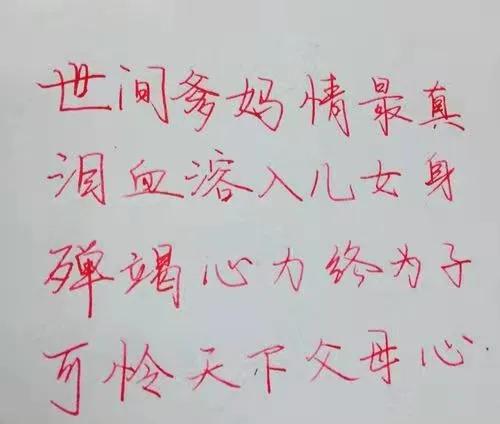 世间爹妈情最真
泪血溶入儿女身
殚竭心力终为子
可怜天下父母心